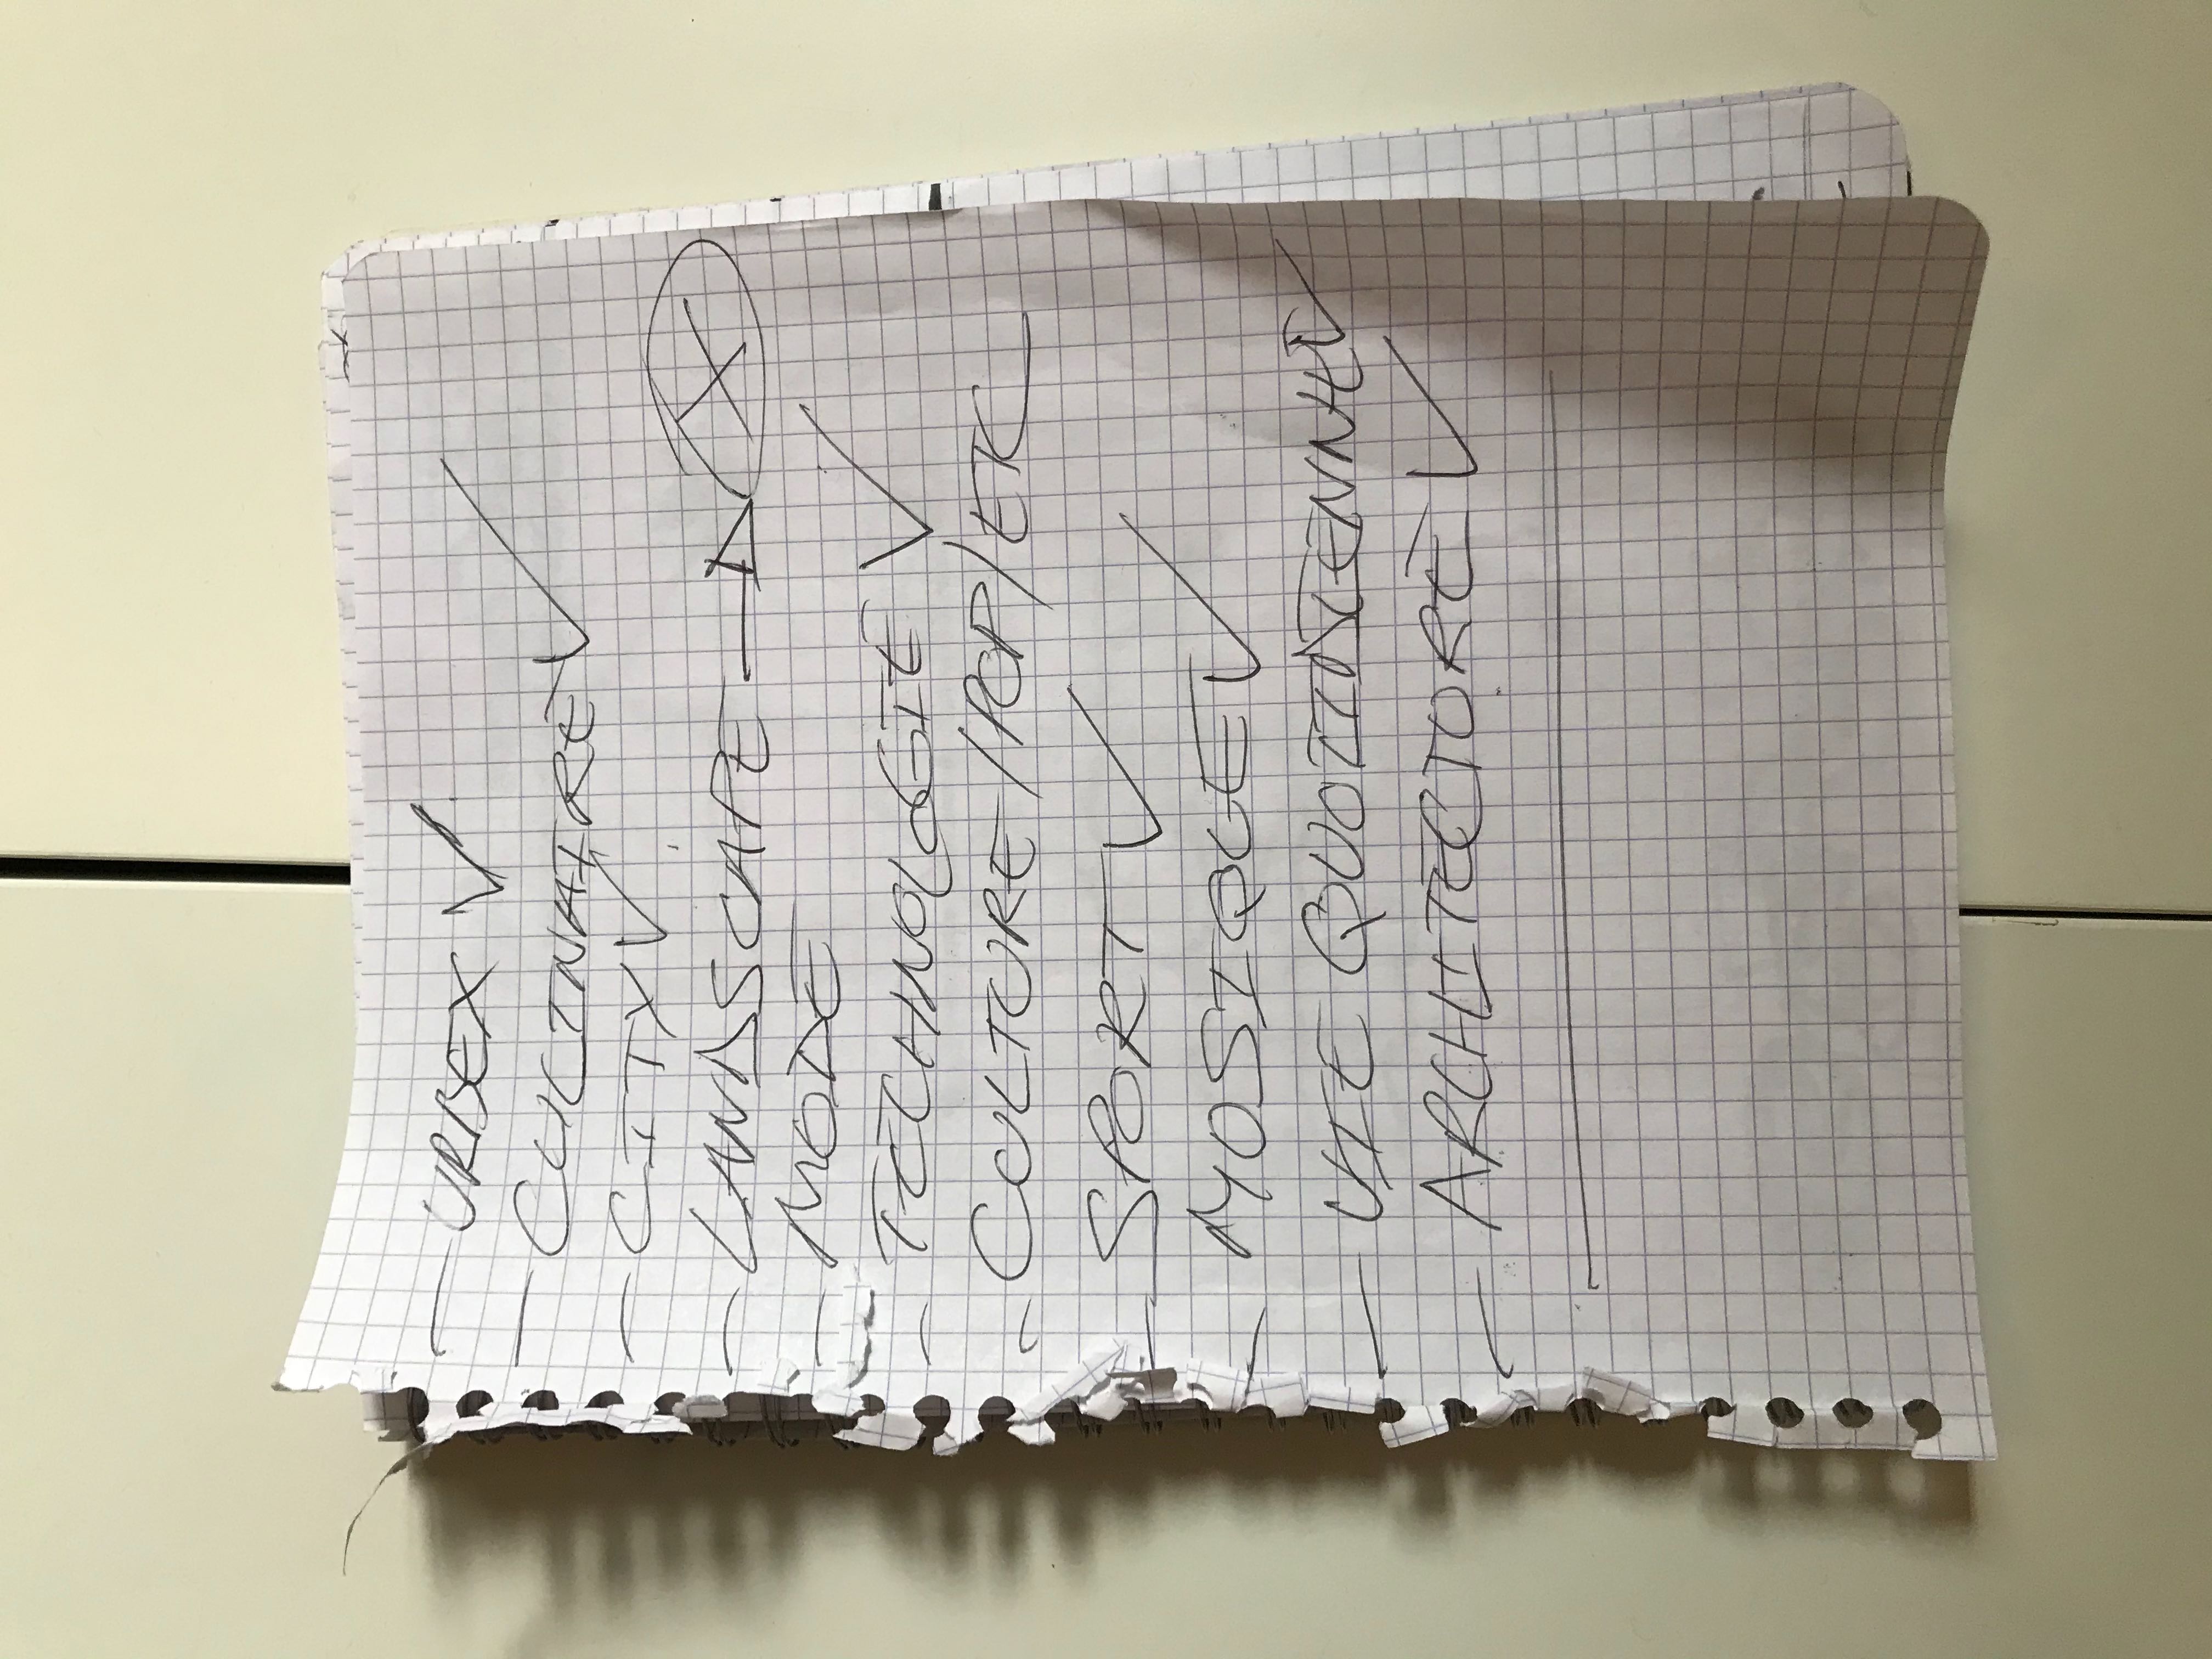 - URBEX ✓
- CULINAIRE ✓
- CITY ✓
- LANDSCAPE → X
- MODE
- TECHNOLOGIE ✓
- CULTURE / POP / ETC
- SPORT ✓
- MUSIQUE ✓
- VIE QUOTIDIENNE ✓
- ARCHITECTURE ✓